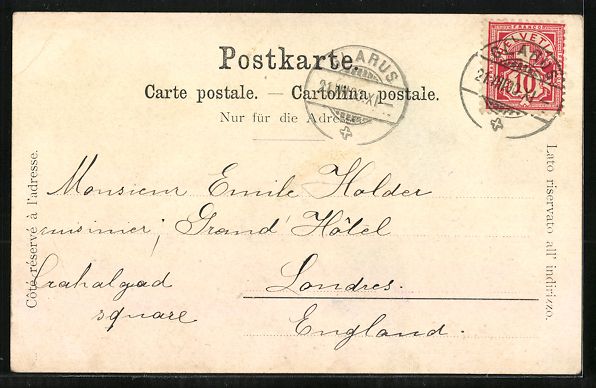 Postkarte.
Carte postale. — Cartolina postale.
Nur für die Adresse
HELVETIA
FRANCO
10
GLARUS
GLARUS
Côté réservé à l'adresse.
Lato riservato all' indirizzo.
Monsieur Emile Holder
cuisinier; Grand Hôtel
Trahalgad Londres.
square England.